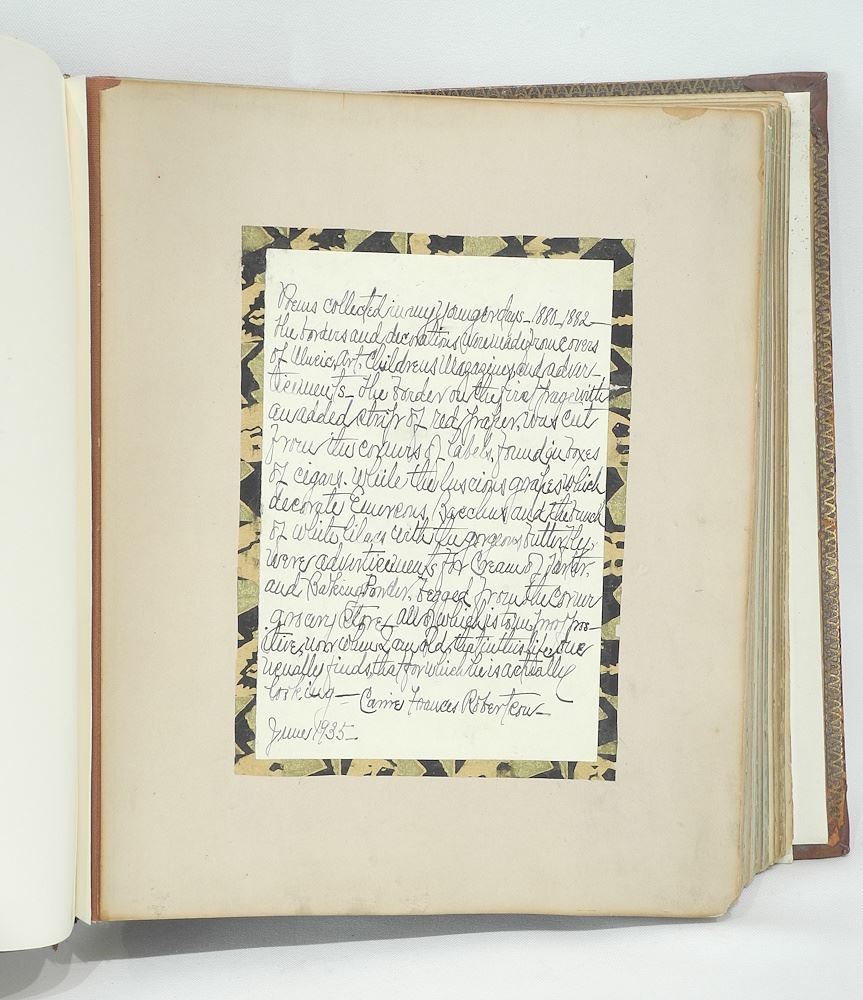 Poems collected in my younger days - 1880-1882 -
the borders and decorations were made from covers
of Music, Art, Childrens Magazines and adver-
tisements - the border on the first page with
an added strip of red paper, was cut
from the corners of labels, found in boxes
of cigars. While the luscious grapes which
decorate Emersons, Bacchus and the bunch
of white lilacs with the gorgeous butterfly,
were advertisements for Cream of Tartar,
and Baking Powder, begged from the corner
grocery store, all of which is to me proof pos-
itive, now when I am old, that in this life, one
usually finds, that for which he is actually
looking - Carrie Frances Robertson -
June 1935 -